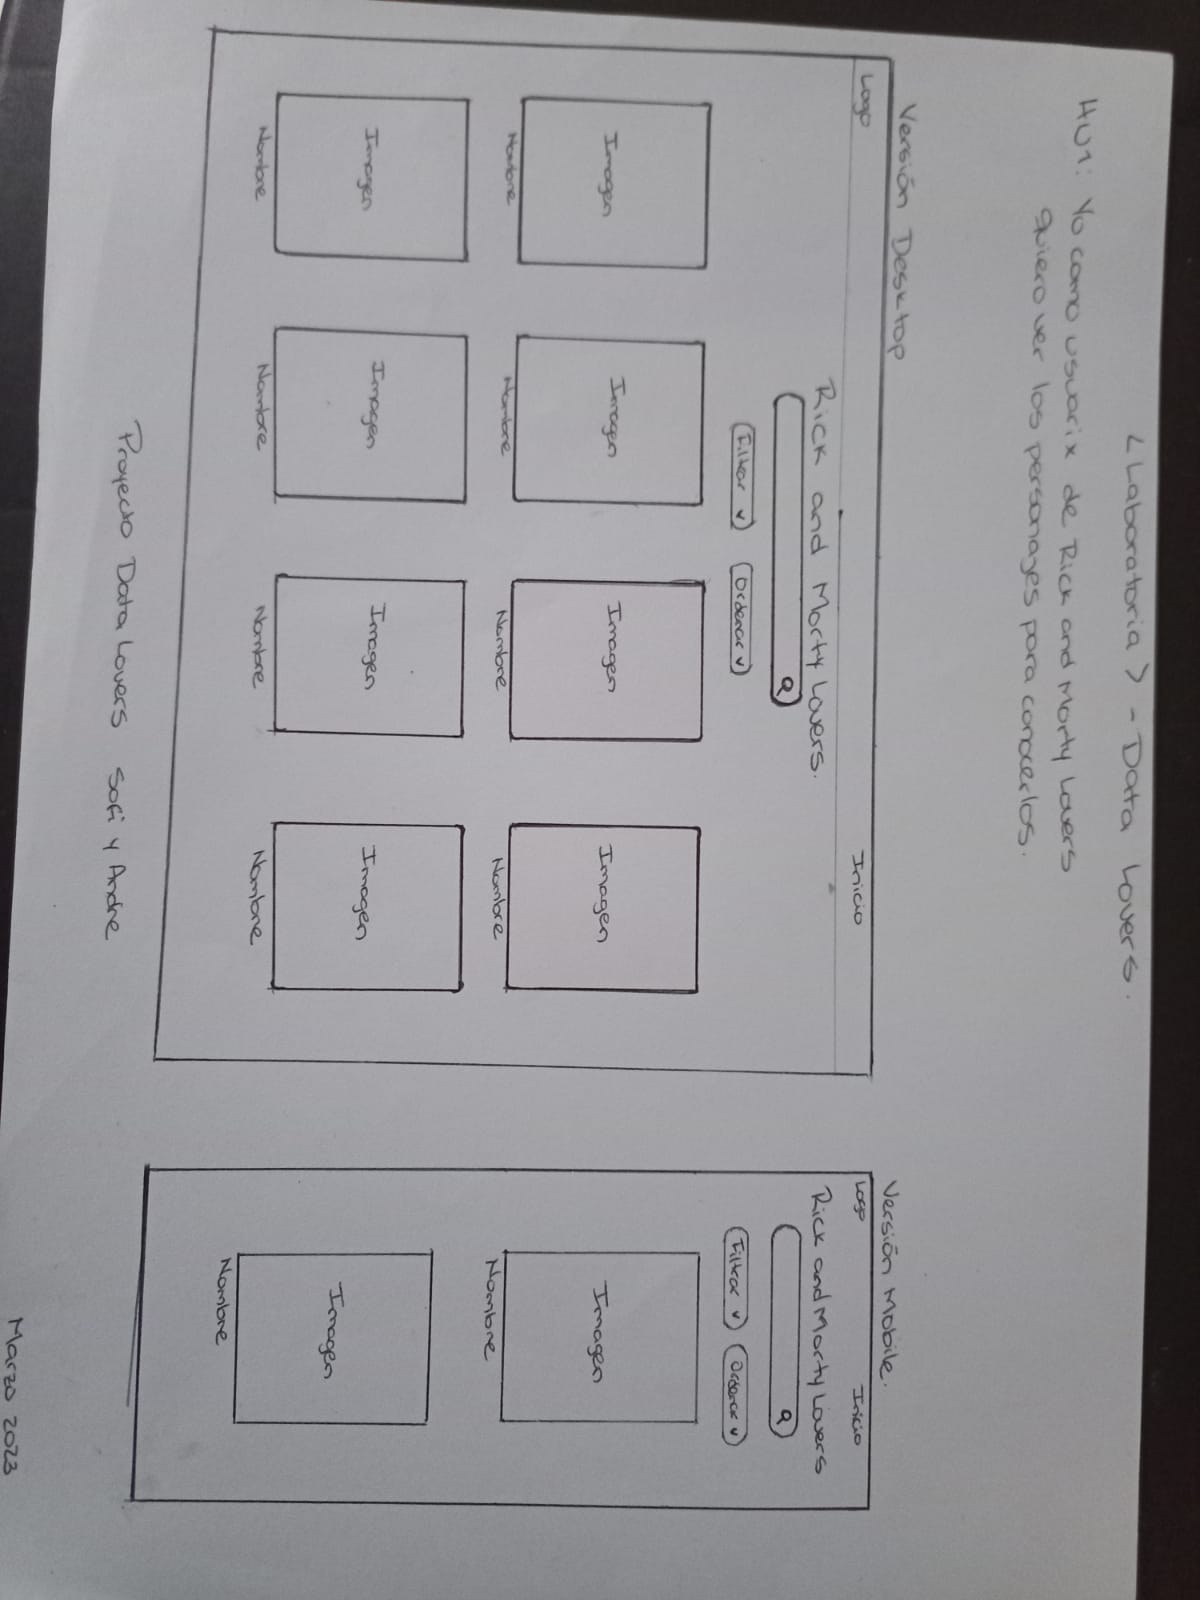 <Laboratoria> - Data Lovers.
HU1: Yo como usuarix de Rick and Morty Lovers
quiero ver los personajes para conocerlos.
Versión Desktop
Logo Inicio
Rick and Morty Lovers.
Filtrar Ordenar
Imagen Imagen Imagen Imagen
Nombre Nombre Nombre Nombre
Imagen Imagen Imagen Imagen
Nombre Nombre Nombre Nombre
Versión Mobile.
Logo Inicio
Rick and Morty Lovers
Filtrar Ordenar
Imagen
Nombre
Imagen
Nombre
Proyecto Data Lovers Sofi y Andre
Marzo 2023